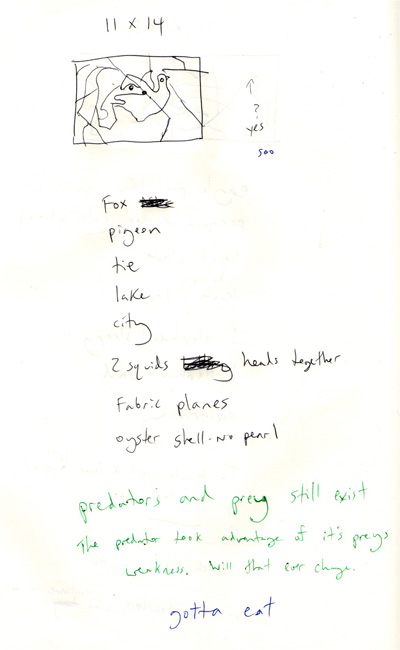 11 x 14
↑
?
yes
500
Fox
pigeon
tie
lake
city
2 squids heads together
Fabric planes
oyster shell. No pearl
predators and prey still exist
The predator took advantage of it's preys
weakness. Will that ever change.
gotta eat